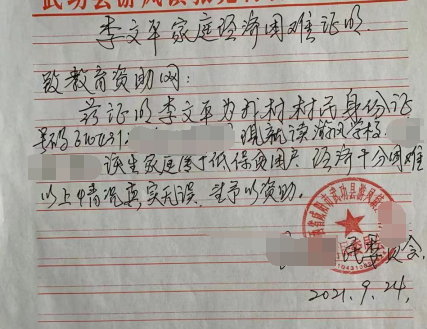 武功县游风镇
李文平家庭经济困难证明
致教育资助网:
兹证明李文平为我村村民身份证
号码610431 现就读游风学校
该生家庭属于低保贫困户 经济十分困难
以上情况真实无误,望予以资助。
民委员会
2021.9.24